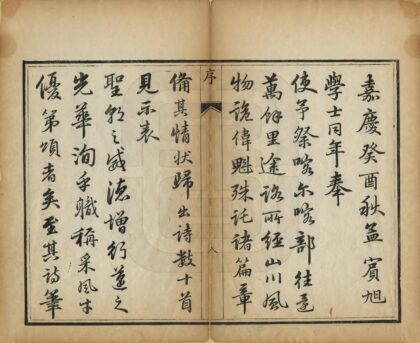 嘉慶癸酉秋孟賓旭
學士同年奉
使予祭喀尔喀部往還
萬餘里途路所經山川風
物詭偉魁殊託諸篇章
序
八
備其情狀歸出詩数十首
見示表
聖朝之威德增行邁之
光華洵乎職稱采風才
優第頌者矣至其詩筆